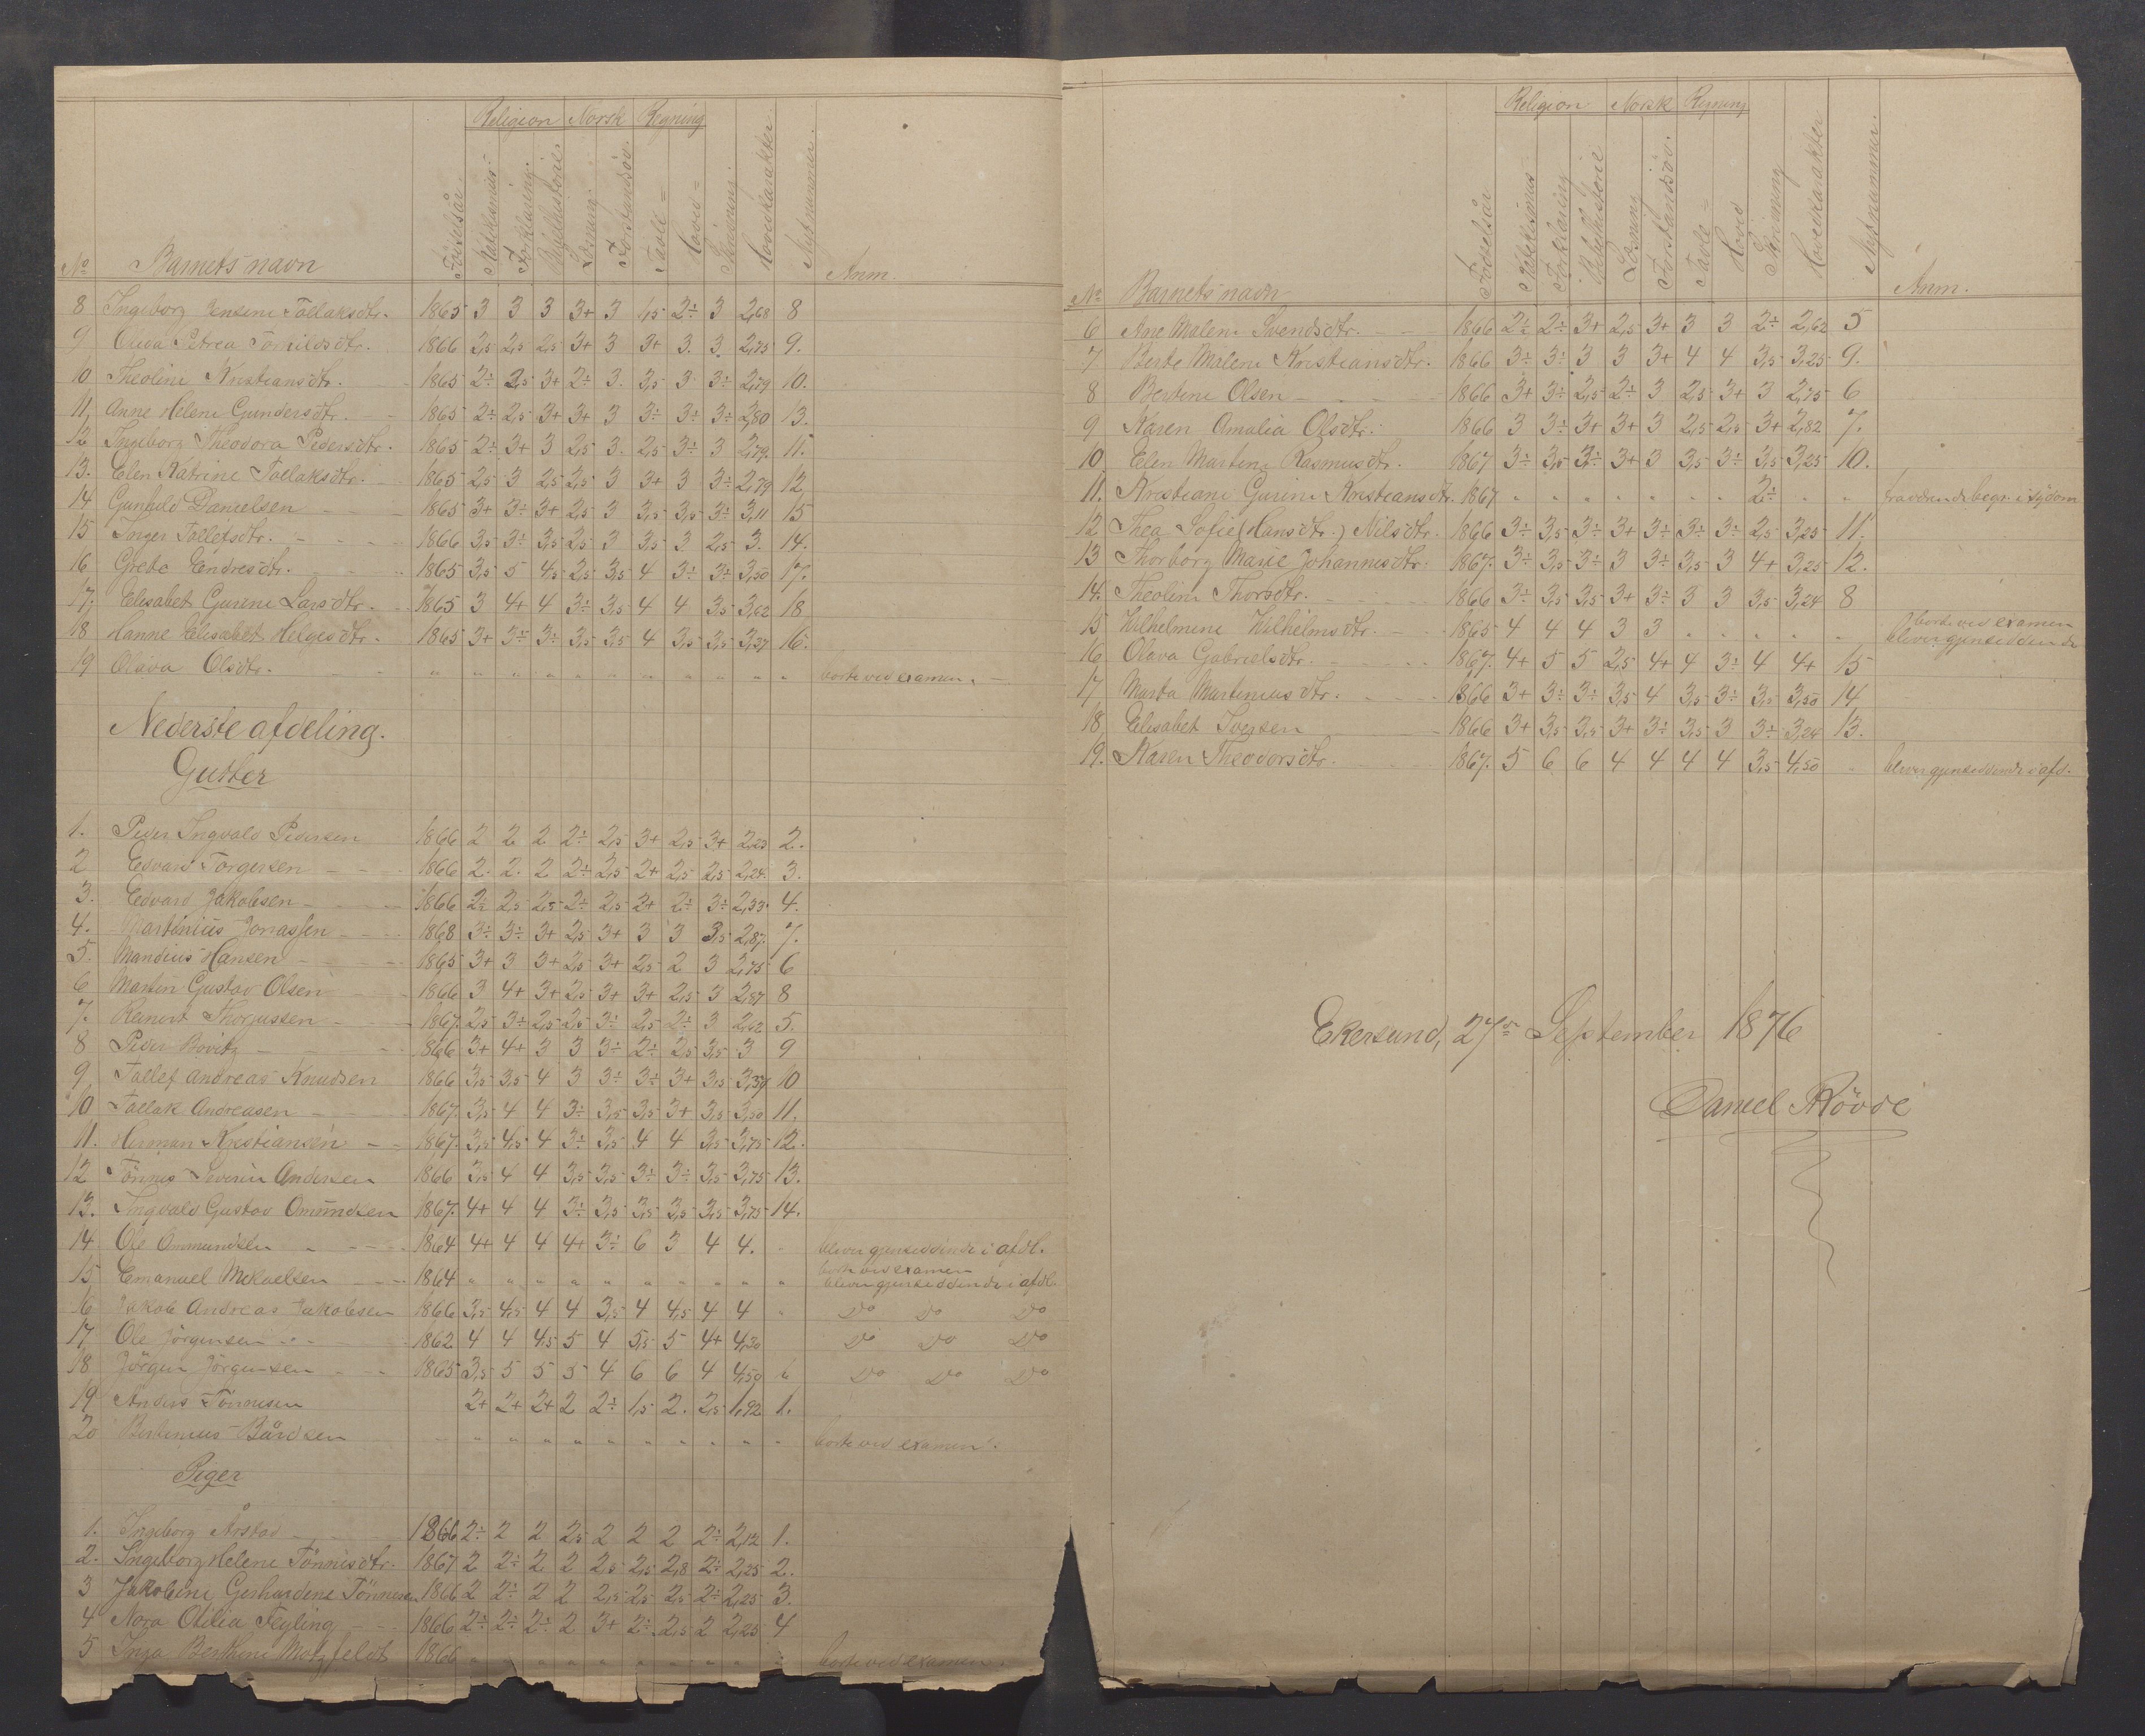 Religion Norsk Regning
No Barnets navn Födselsår Katekismus Forklaring Bibelhistorie Læsning Forstandsöv. Tavle= Hoved= Skrivning Hovedkarakter Flytnummer. Anm.
8 Ingeborg Jensine Tollaksdtr. 1865 3 3 3 3+ 3 1,5 2÷ 3 2,68 8
9 Petrea 1866 2,5 2,5 2,5 3+ 3 3+ 3. 3. 2,75 9.
10 Theoline Kristiansdtr. 1865 2÷ 2,5 3+ 2÷ 3. 3,5 3 3÷ 2,79 10.
11, Anne Helene Gundersdtr. 1865 2÷ 2,5 3+ 3+ 3 3÷ 3÷ 3÷ 2,80 13.
12 Ingeborg Theodora Pedersdtr. 1865 2÷ 3+ 3 2,5 3. 2,5 3÷ 3 2,79. 11.
13. Elen Katrine Tollaksdtr. 1865 2,5 3 2,5 2,5 3 3+ 3 3÷ 2,79 12
14 Gunhild Danielsen 1865 3+ 3÷ 3+ 2,5 3 3,5 3,5 3÷ 3,11 15
15 Inger Tollefsdtr. 1866 3,5 3÷ 3,5 2,5 3 3,5 3 2,5 3. 14.
16 Grete Endresdtr. 1865 3,5 5 4,5 2,5 3,5 4 3÷ 3÷ 3,50 17.
17, Elisabet Gurine Larsdtr. 1865 3 4+ 4 3÷ 3,5 4 4 3,5 3,62 18
18 Hanne Elisabet Helgesdtr. 1865 3+ 3÷ 3÷ 3,5 3,5 4 3,5 3,5 3,37 16.
19 Olava Olsdtr. " " " " " " " " " " " borte ved examen.
Nederste afdeling.
Gutter
1. Peder Ingvald Pedersen 1866 2 2 2 2÷ 2,5 3+ 2,5 3+ 2,23 2.
2 Edvard Torgersen 1866 2. 2. 2 2÷ 2,5 2+ 2,5 2,5 2,24. 3.
3. Edvard Jakobsen 1866 2÷ 2,5 2,5 2÷ 2,5 2+ 2÷ 3÷ 2,33. 4.
4. Martinius Jonassen 1868 3÷ 3÷ 3+ 2,5 3+ 3 3 3,5 2,87. 7.
5. Mandius Hansen 1865 3+ 3 3+ 2,5 3+ 2,5 2 3 2,75 6
6 Martin Gustav Olsen 1866 3 4+ 3+ 2,5 3+ 3+ 2,5 3 2,87 8
7. Reinert Thorjussen 1867. 2,5 3÷ 2,5 2,5 3÷ 2,5 2÷ 3 2,62 5.
8 Peder Bovitz 1866 3+ 4+ 3 3 3÷ 2÷ 2,5 3,5 3 9
9 Tollef Andreas Knudsen 1866 3,5 3,5 4 3 3÷ 3÷ 3+ 3,5 3,39 10
10 Tollak Andreasen 1867. 3,5 4 4 3÷ 3,5 3,5 3+ 3,5 3,50 11.
11. Herman Kristiansen 1867. 3,5 4,5 4 3÷ 3,5 4 4 3,5 3,75 12.
12 Tönnes Severin Andersen 1866 3,5 4 4 3,5 3,5 3÷ 3÷ 3,5 3,75 13.
13. Ingvald Gustav Omundsen 1867. 4+ 4 4 3÷ 3,5 3,5 3,5 3,5 3,75 14.
14 Ole Ommundsen 1864 4+ 4 4 4+ 3÷ 6 3 4 4. " bliver gjensiddende i afdl.
15 Emanuel Mikaelsen 1864 " " " " " " " " " " borte ved examen bliver gjensiddende i afdl.
16 Jakob Andreas Jakobsen 1866 3,5 4,5 4 4 3,5 4 4,5 4 4 " Do Do Do
17 Ole Jörgensen 1862 4 4 4,5 5 4 5,5 5 4+ 4,30 Do Do Do
18 Jörgen Jörgensen 1865 3,5 5 5 5 4 6 6 4 4,50 " Do Do Do
19 Anders Tönnesen 2+ 2+ 2+ 2 2÷ 1,5 2. 2,5 1,92 1.
20 Bertinius Bårdsen " " " " " " " " " " borte ved examen.
Piger
1. Ingeborg Årstad 1866 2÷ 2 2 2,5 2 2 2 2÷ 2,12 1.
2. Ingeborg Helene Tönnisdtr. 1867 2 2÷ 2 2 2,5 2,5 2,8 2÷ 2,25 2.
3 Jakobine Gerhardene Tönnesen 1866 2 2÷ 2 2 2,5 2,5 2,5 2÷ 2,25 3.
4 Nora Otilia Feyling 1866 2÷ 2÷ 2÷ 2 3+ 2÷ 2,5 2 2,25 4
5 Inga Berthine Motzfeldt 1866 " " " " " " " " " " borte ved examen.
Religion Norsk Regning
No Barnets navn Födselsår Katekismus= Forklaring Bibelhistorie Læsning Forstandsöv. Tavle= Hoved Skrivning Hovedkarakter Flytnummer. Anm.
6 Ane Malene Svendsdtr. 1866 2÷ 2÷ 3+ 2,5 3+ 3 3 2÷ 2,62 5
7 Berte Malene Kristiansdtr. 1866 3÷ 3÷ 3 3 3+ 4 4 3,5 3,25 9.
8 Bertine Olsen 1866 3+ 3÷ 2,5 2÷ 3 2,5 3+ 3 2,75 6
9 Karen Amalia Olsdtr. 1866 3 3÷ 3+ 3+ 3 2,5 2,5 3+ 2,82 7.
10 Elen Martine Rasmusdtr. 1867 3÷ 3,5 3÷ 3+ 3 3,5 3÷ 3,5 3,25 10.
11. Kristiane Gurine Kristiansdtr. 1867 " " " " " " " 2÷ " " fraværende begr. i sygdom
12 Thea Sofie (Hansdtr.) Nilsdtr. 1866 3÷ 3,5 3÷ 3+ 3÷ 3÷ 3÷ 2,5 3,25 11.
13 Thorborg Marie Johannesdtr. 1867. 3÷ 3,5 3÷ 3 3÷ 3,5 3 4+ 3,25 12.
14. Theoline Thorsdtr. 1866 3÷ 3,5 3,5 3+ 3÷ 3 3 3,5 3,24 8
15 Wilhelmine Wilhelmsdtr. 1865 4 4 4 3 3 " " " " " borte ved examen bliver gjensiddende
16 Olava Gabrielsdtr. 1867. 4+ 5 5 2,5 4+ 4 3÷ 4 4+ 15
17 Marta Martiniusdtr. 1866 3+ 3÷ 3÷ 3,5 4 3,5 3÷ 3,5 3,50 14,
18 Elisabet Iversen 1866 3+ 3,5 3,5 3+ 3÷ 3,5 3 3÷ 3,24 13.
19. Karen Theodorsdtr. 1867. 5 6 6 4 4 4 4 3,5 4,50 " bliver gjensiddende i afd.
Ekersund, 27de September 1876
Daniel Rövde